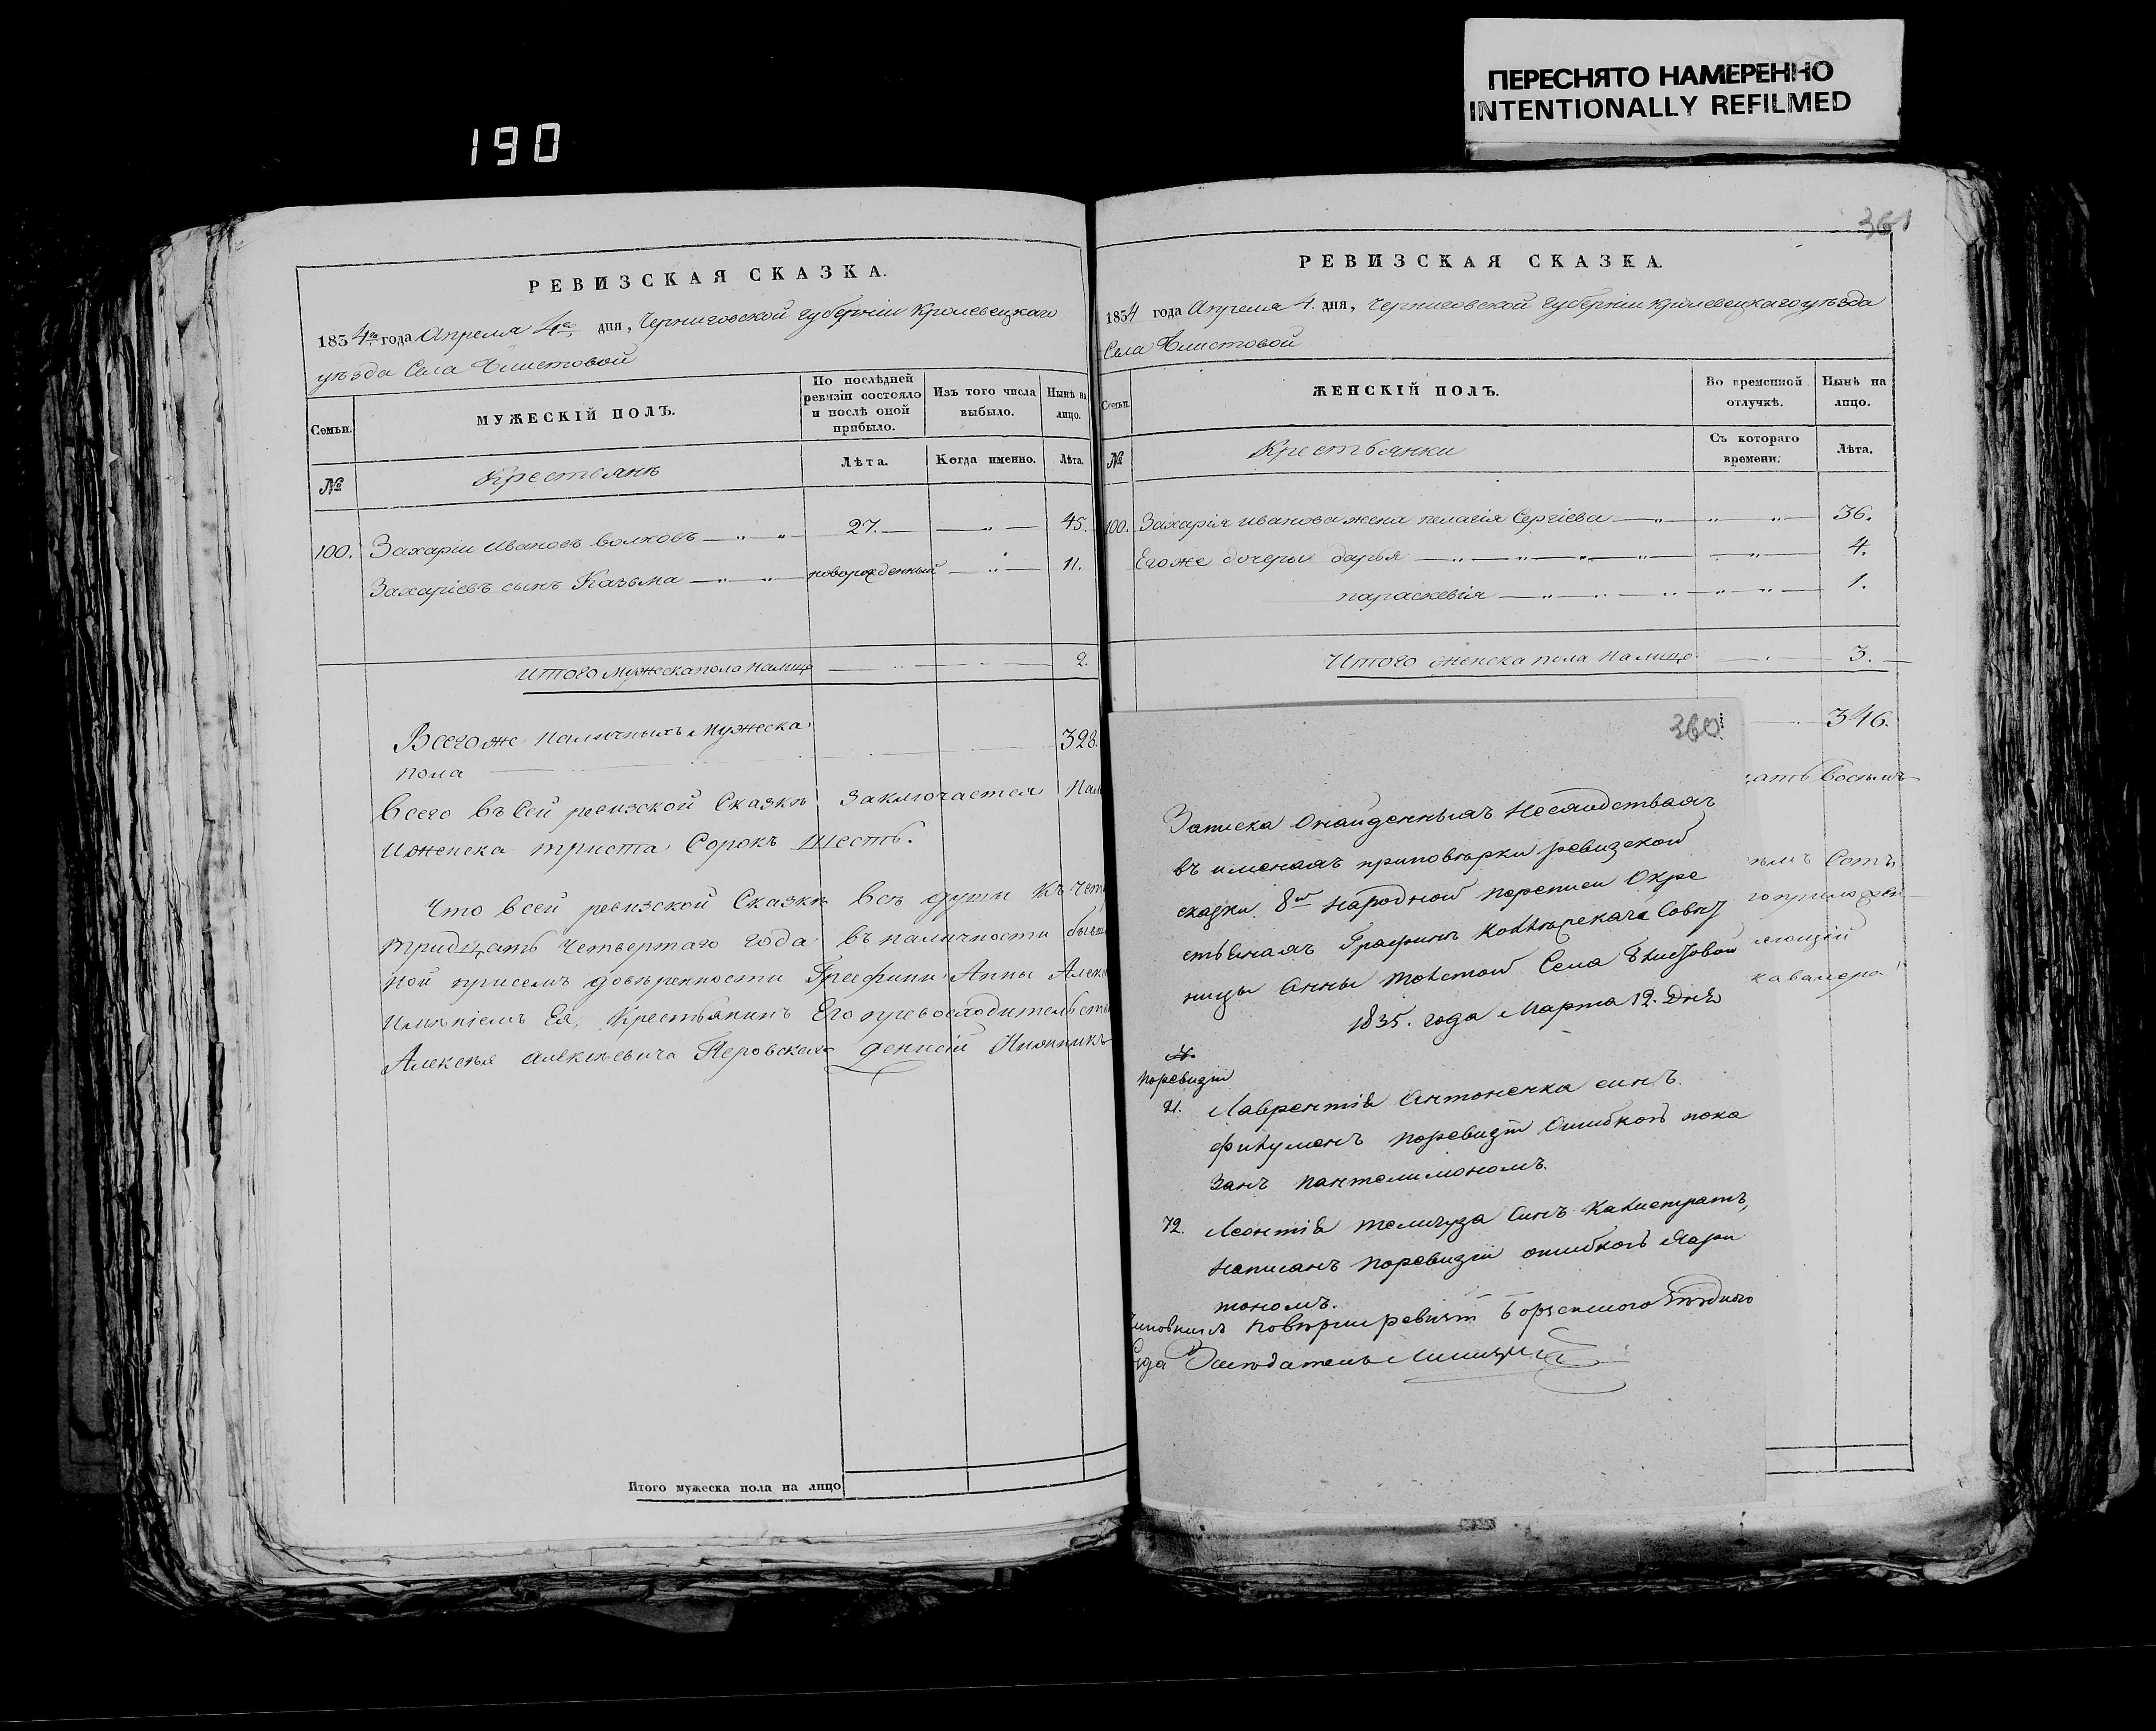 ПЕРЕСНЯТО НАМЕРЕННО
INTENTIONALLY REFILMED
190
РЕВИЗСКАЯ СКАЗКА.
1834го года Апреля 4го дня, Черниговской Губерніи Кролевецкаго
уѣзда Села Блистовой
Семьи.
МУЖЕСКІЙ ПОЛЪ.
По послѣдней
ревизіи состояло
и послѣ оной
прибыло.
Изъ того числа
выбыло.
Нынѣ на
лицо.
№
Крестьянѣ
Лѣта.
Когда именно.
Лѣта.
100. Захарій Ивановъ волковъ 27. 45.
Захаріевъ сынъ Казьма новорожденный 11.
Итого мужеска пола налицо 2.
Всегоже наличныхъ Мужеска
пола 328.
Всего въ Сей ревизской Сказкѣ заключается Нал
Иженска триста Сорокъ шесть.
Что всей ревизской Сказкѣ всѣ души Къ Чет
тридцать Четвертаго года въ наличности бывш
ной присемъ довѣренности Графини Анны Алек
Имѣніемъ Ея, Крестьянинъ Его превосходительств
Алексѣя Алексѣевича Перовскаго
Итого мужеска пола на лицо
361
РЕВИЗСКАЯ СКАЗКА.
1834 года Апреля 4. дня, Черниговской Губерніи Кролевецкаго уѣзда
Села Блистовой
Семьи.
ЖЕНСКІЙ ПОЛЪ.
Во временной
отлучкѣ.
Нынѣ на
лицо.
№
Крестьянки
Съ котораго
времени.
Лѣта.
100. Захарія иванова жена пелагія Сергіева 36.
Егоже дочери дарья 4.
параскевія 1.
Итого женска пола Налицо 3.
346.
цать восемь
360
Записка Онайденныхъ Несходствахъ
въ именахъ приповѣрки ревизской
сказки 8й народной переписи Окре
стьянахъ Графинѣ Коллѣжскаго Совѣт
ницы Анны Толстой Села Блистовой
1835. года Марта 12. Дня
кавалера
№
поревизіи
21. Лаврентія Антоненка синъ
поревизіи Ошибкой пока
занъ пантелимономъ.
72. Леонтія телигуза Синъ Калистратъ,
написанъ поревизіи ошибкой Хари
тономъ.
Чиновникъ повѣрки ревизіи Борзенского
Суда Засѣдатель